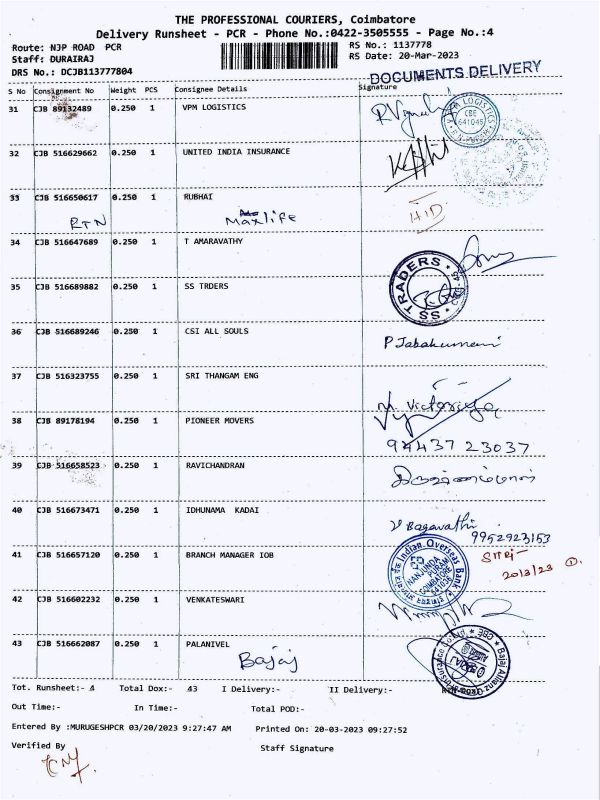 THE PROFESSIONAL COURIERS, Coimbatore
Delivery Runsheet - PCR - Phone No.:0422-3505555 - Page No.:4
Route: NJP ROAD PCR
RS No.: 1137778
Staff: DURAIRAJ
RS Date: 20-Mar-2023
DRS No.: DCJB113777804
DOCUMENTS DELIVERY
S No Consignment No Weight PCS Consignee Details Signature
31 CJB 89132489 0.250 1 VPM LOGISTICS
VPM LOGISTICS CBE 641045
32 CJB 516629662 0.250 1 UNITED INDIA INSURANCE
33 CJB 516650617 0.250 1 RUBHAI
RTN Maxlife
34 CJB 516647689 0.250 1 T AMARAVATHY
35 CJB 516689882 0.250 1 SS TRDERS
SS TRADERS
36 CJB 516689246 0.250 1 CSI ALL SOULS
P Jabakumari
37 CJB 516323755 0.250 1 SRI THANGAM ENG
38 CJB 89178194 0.250 1 PIONEER MOVERS
94437 23037
39 CJB 516658523 0.250 1 RAVICHANDRAN
40 CJB 516673471 0.250 1 IDHUNAMA KADAI
V Bagavathi
9952923153
41 CJB 516657120 0.250 1 BRANCH MANAGER IOB
Indian Overseas Bank
NANJUNDA PURAM COIMBATORE
20/3/23 1.
42 CJB 516602232 0.250 1 VENKATESWARI
43 CJB 516662087 0.250 1 PALANIVEL
Bajaj
Bajaj Allianz
Tot. Runsheet:- 4 Total Dox:- 43 I Delivery:- II Delivery:-
Out Time:- In Time:- Total POD:-
Entered By :MURUGESHPCR 03/20/2023 9:27:47 AM Printed On: 20-03-2023 09:27:52
Verified By Staff Signature